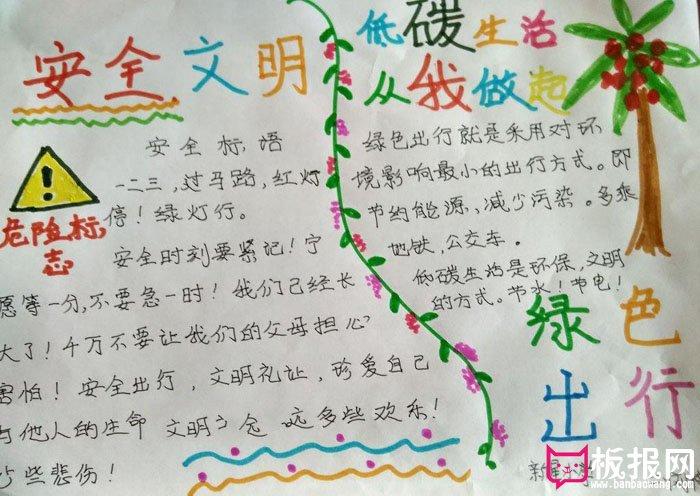 安全文明
安全标语
一二三,过马路,红灯
停!绿灯行。
安全时刻要紧记!宁
愿等一分,不要急一时!我们已经长
大了!千万不要让我们的父母担心
害怕!安全出行,文明礼让,珍爱自己
他人的生命 文明 多些欢乐!
少些悲伤!
危险标
志
低碳生活
从我做起
绿色出行就是采用对环
境影响最小的出行方式。即
节约能源,减少污染。多乘
地铁,公交车。
低碳生活是环保,文明
的方式。节水!节电!
绿色
出行
板报网
www.banbaowang.com